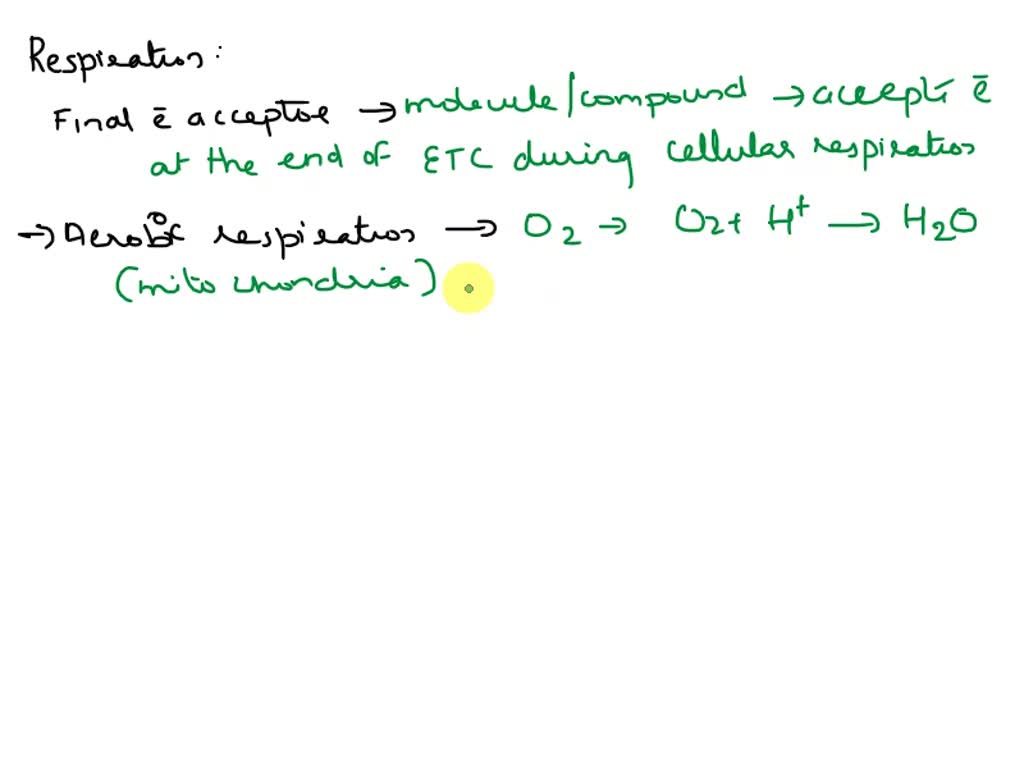 Respiration:
Final ē acceptor → molecule/compound → accepts ē
at the end of ETC during cellular respiration
→ Aerobic respiration → O2 → O2 + H+ → H2O
(mitochondria)